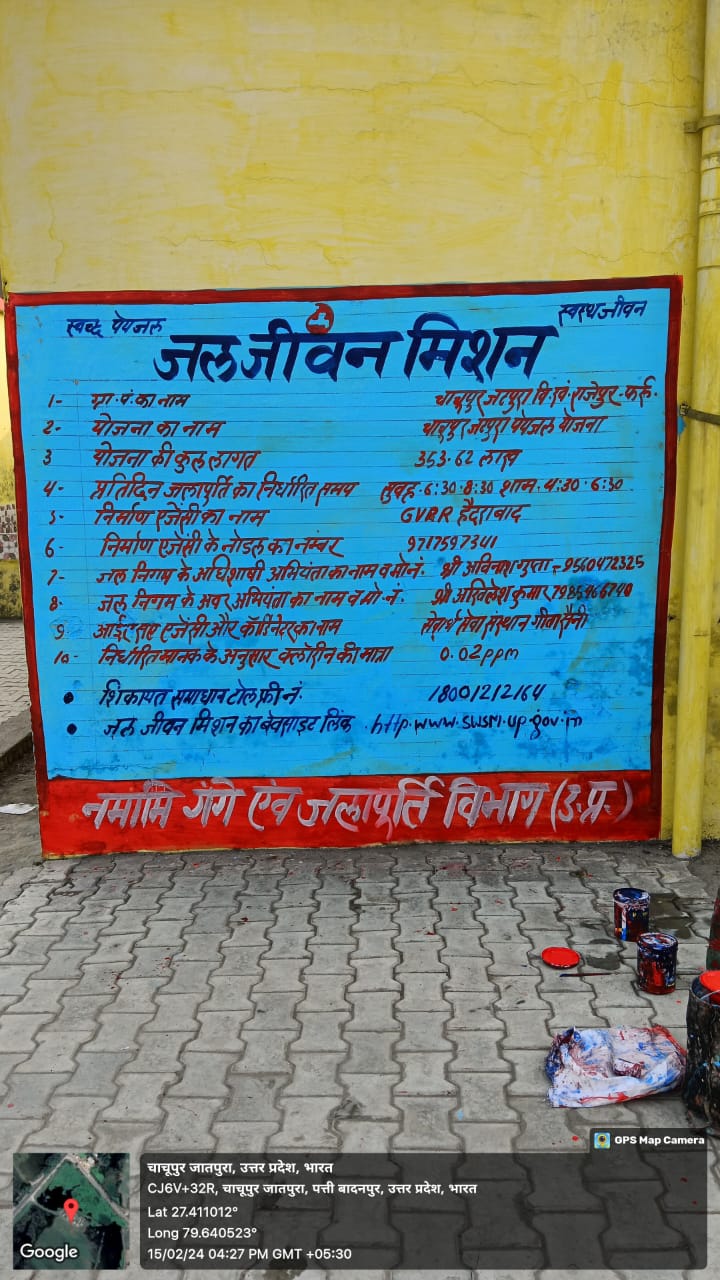 स्वच्छ पेयजल
स्वस्थ जीवन
जल जीवन मिशन
1- ग्रा.पं. का नाम चाचूपुर जटपुरा वि.खं. राजेपुर - फर्रु.
2- योजना का नाम चाचूपुर जटपुरा पेयजल योजना
3 योजना की कुल लागत 353.62 लाख
4- प्रतिदिन जलापूर्ति का निर्धारित समय सुबह. 6:30-8:30 शाम. 4:30-6:30
5- निर्माण एजेंसी का नाम GVRR हैदराबाद
6- निर्माण एजेंसी के नोडल का नम्बर 9717597341
7- जल निगम के अधिशाषी अभियंता का नाम व मो.नं. श्री अविनाश गुप्ता - 9560472325
8- जल निगम के अवर अभियंता का नाम व मो.नं. श्री अखिलेश कुमार
9- आई एस ए एजेंसी और कॉर्डिनेटर का नाम सेवार्थ सेवा संस्थान
10- निर्धारित मानक के अनुसार क्लोरीन की मात्रा 0.02ppm
• शिकायत समाधान टोल फ्री नं. 18001212164
• जल जीवन मिशन का बेवसाइट लिंक . http.www.swsm.up.gov.in
नमामि गंगे एंव जलापूर्ति विभाग (उ.प्र.)
GPS Map Camera
चाचूपुर जातपुरा, उत्तर प्रदेश, भारत
CJ6V+32R, चाचूपुर जातपुरा, पत्ती बादनपुर, उत्तर प्रदेश, भारत
Lat 27.411012°
Long 79.640523°
15/02/24 04:27 PM GMT +05:30
Google